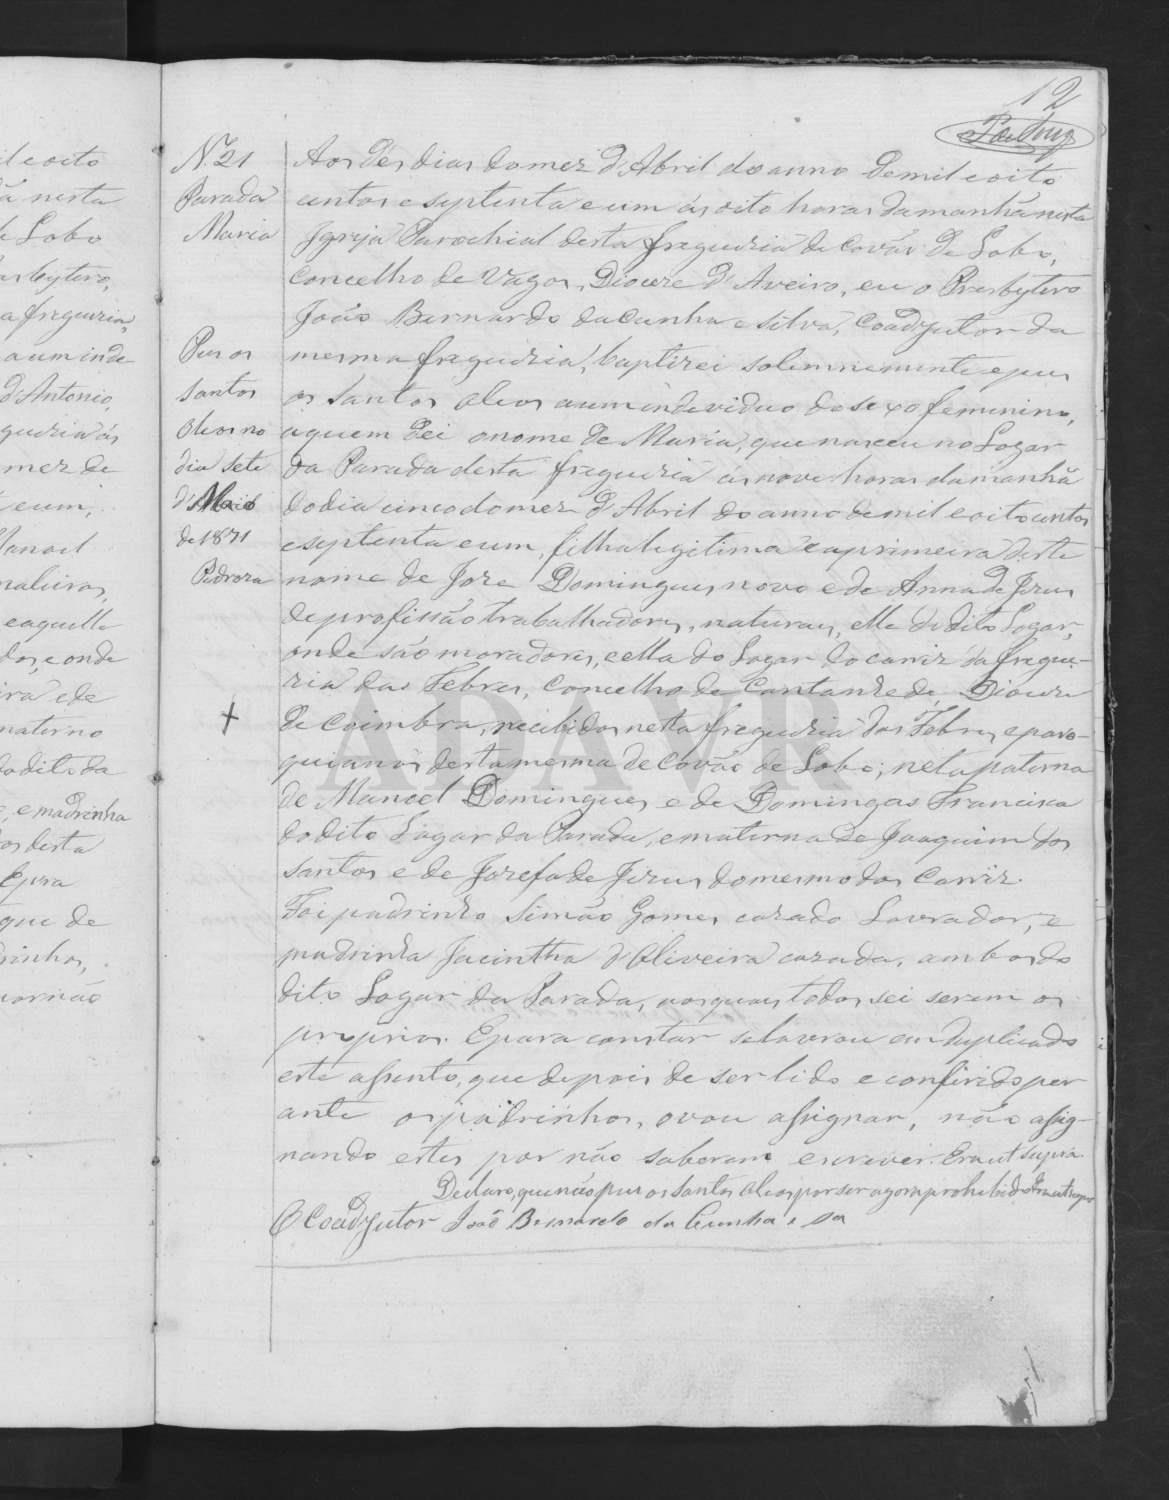 12
N.º 21
Parada
Maria
Pus os
santos
oleos no
dia sete
d'Maio
de 1871
Pedroza
Aos dés dias do mez d'Abril do anno de mil e oito
centos e septenta e um ás oito horas da manhã nesta
Igreja Parochial desta freguezia de Covão de Lobo,
Concelho de Vagos, Diocese d'Aveiro, eu o Presbytero
João Bernardo da Cunha e Silva, Coadjutor da
mesma freguezia, baptizei solemnemente e pus
os Santos oleos a um individuo do sexo feminino,
a quem dei o nome de Maria, que nasceu no Logar
da Parada desta freguezia ás nove horas da manhã
do dia cinco do mez d'Abril do anno de mil e oito centos
e septenta e um, filha legitima e a primeira deste
nome de Joze Domingues novo e de Anna de Jezus
de profissão trabalhadores, naturaes, elle do dito Logar,
onde são moradores, e ella do Logar do Corriz da fregue-
zia das Febres, Concelho de Cantanhede, Diocese
de Coimbra, recebidos nesta freguezia das Febres e paro-
quianos desta mesma de Covão de Lobo; neta paterna
de Manoel Domingues e de Domingas Francisca
do dito Logar da Parada, e materna de Joaquim dos
Santos e de Jozefa de Jezus do mesmo dos Corriz.
Foi padrinho Simão Gomes cazado Lavrador, e
madrinha Jacintha d'Oliveira cazada, ambos do
dito Logar da Parada, aos quaes todos sei serem os
proprios. E para constar se lavrou em duplicado
este assento, que depois de ser lido e conferido per
ante os padrinhos, o vou assignar, não assig-
nando estes por não saberem escrever. Era ut supra.
Declaro, que não pus os Santos Oleos por ser agora prohibido Era ut supra
O Coadjutor João Bernardo da Cunha e Sa
il e oito
nesta
Lobo
presbytero,
a freguezia,
a um inde
d'Antonio,
guezia ás
mez de
e um,
Manoel
e aquella
dos, e onde
ira e de
materno
do dito da
e madrinha
os desta
E pra
que de
drinhos,
por não
ADAVR